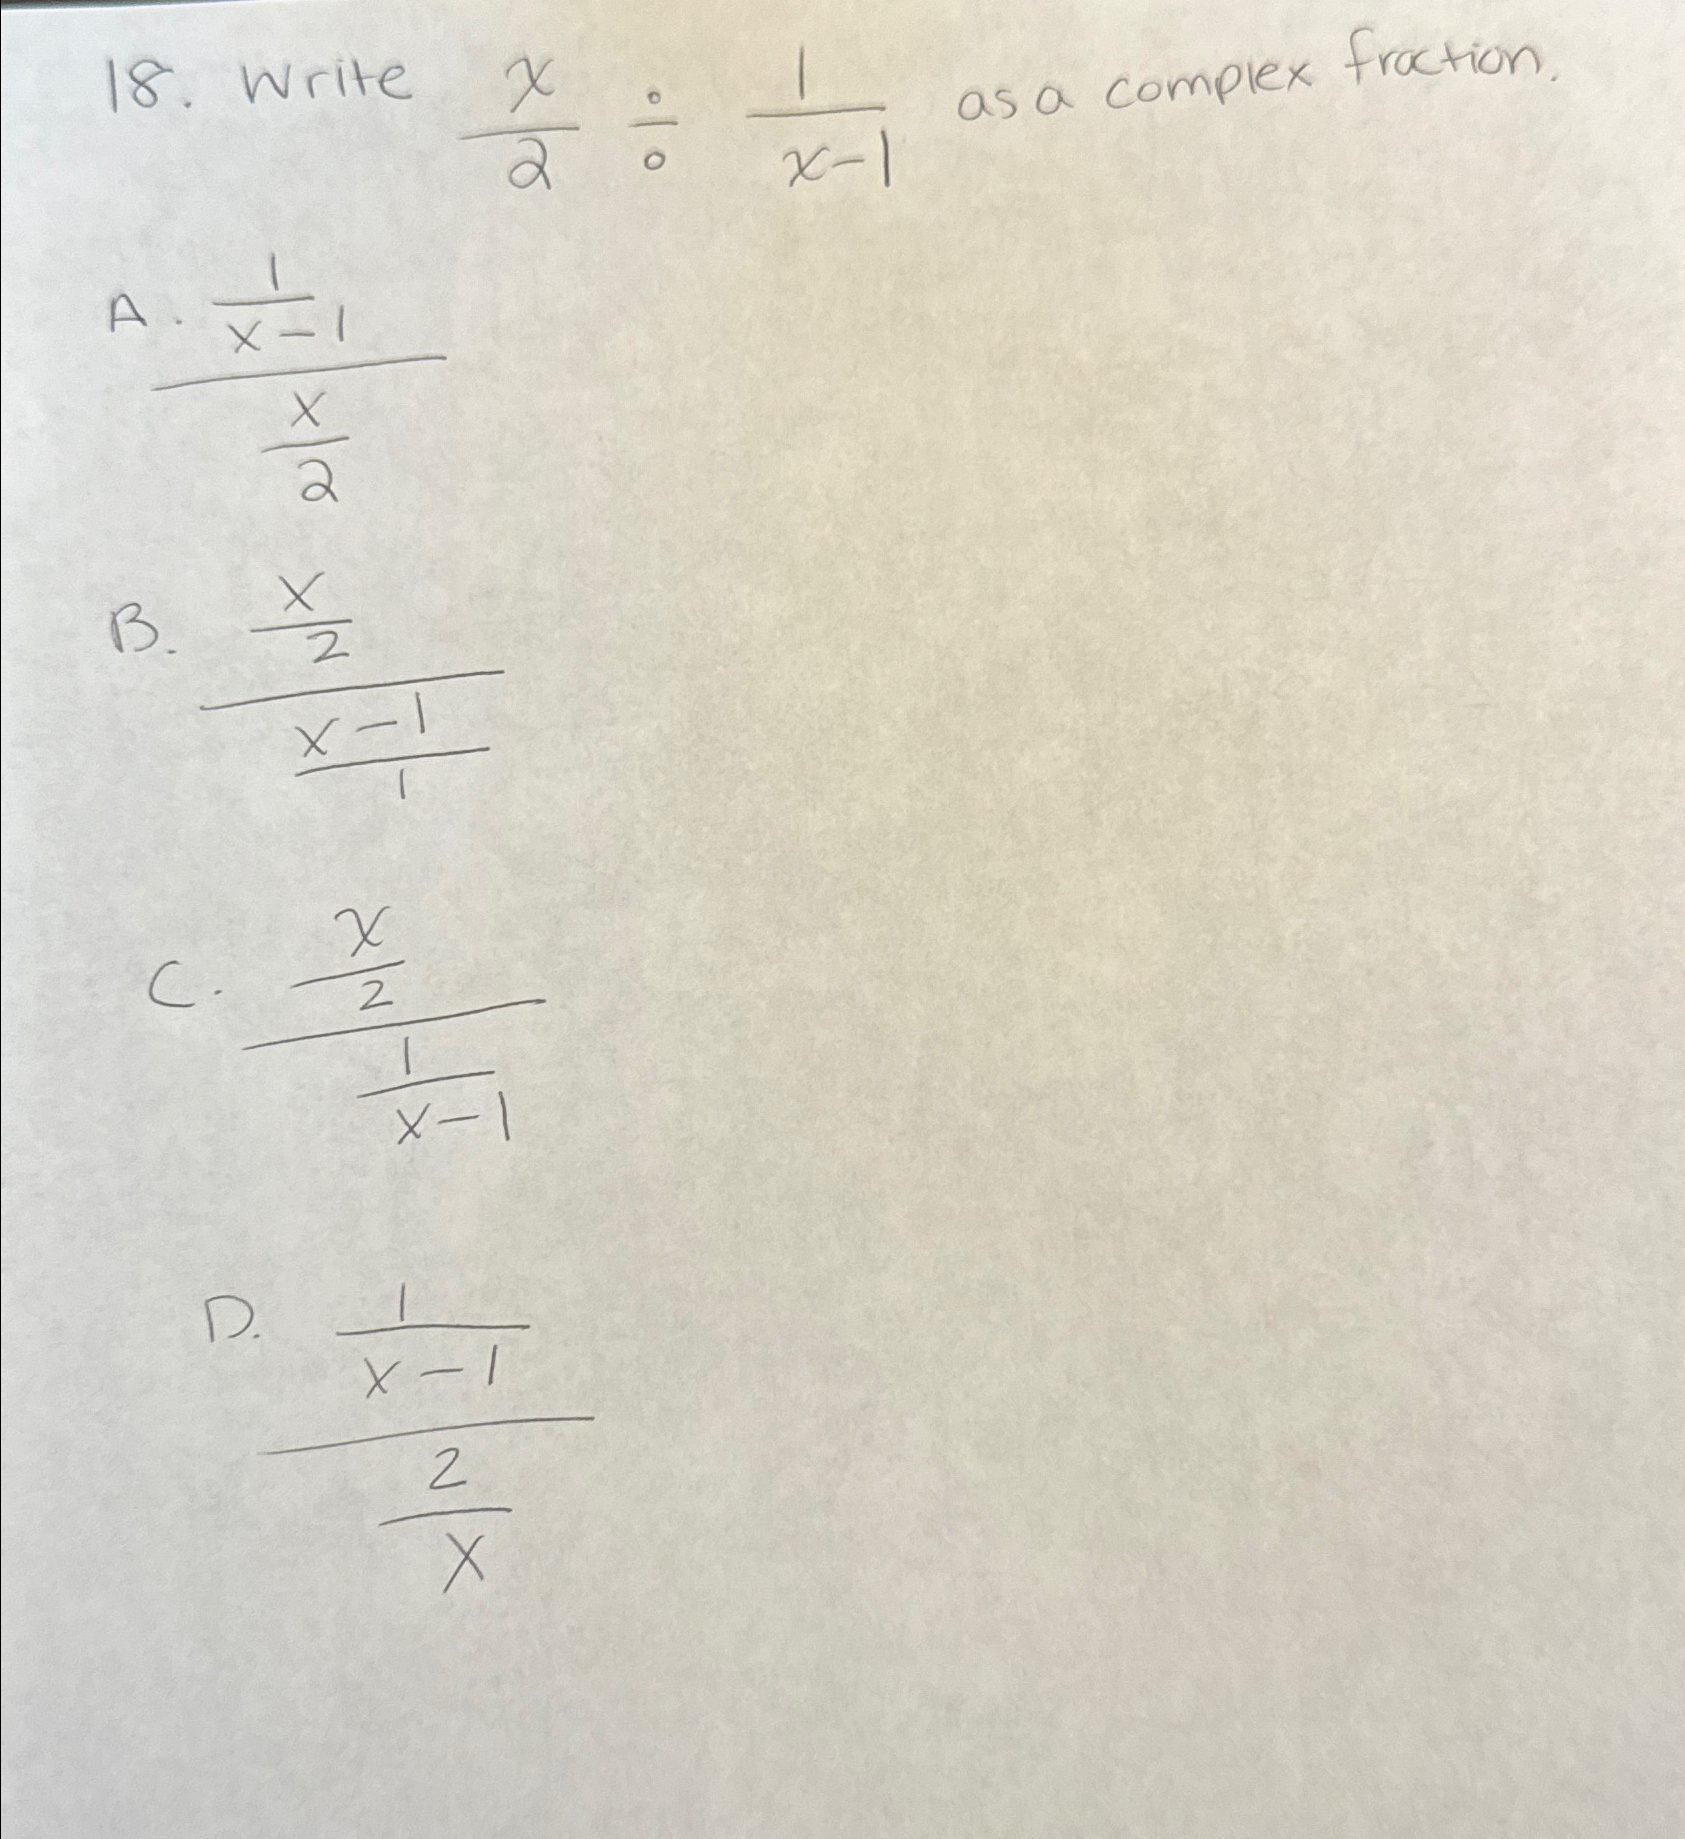 18. Write x/2 ÷ 1/x-1 as a complex fraction.
A. 1/x-1
x/2
B. x/2
x-1/1
C. x/2
1/x-1
D. 1/x-1
2/x